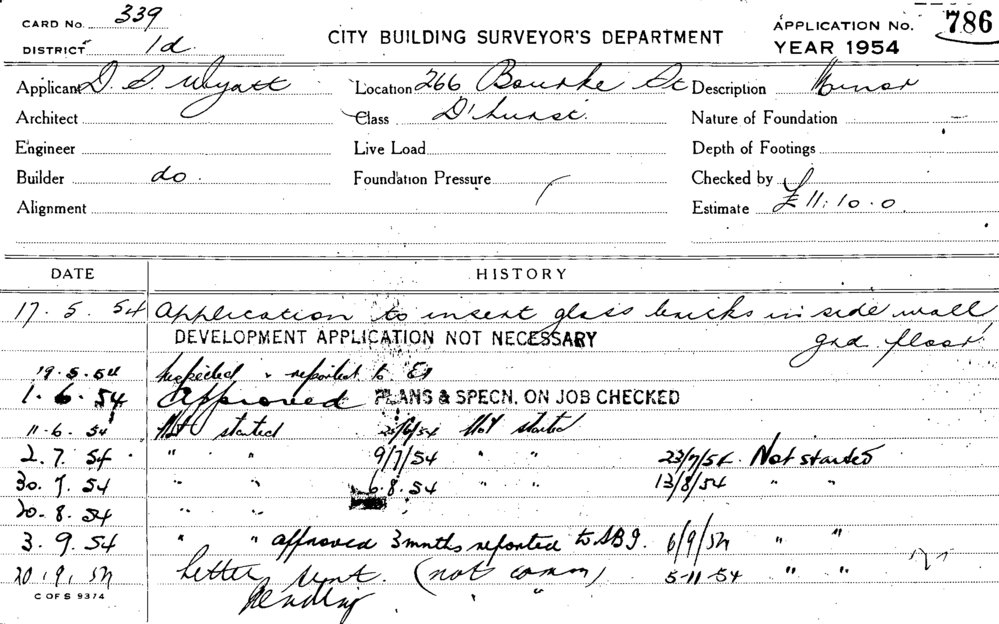 CARD No. 339
DISTRICT 1d.
CITY BUILDING SURVEYOR'S DEPARTMENT
APPLICATION No. 786
YEAR 1954
Applicant D. S. Wyatt Location 266 Bourke St Description Minor
Architect Class D'hurst. Nature of Foundation -
Engineer Live Load Depth of Footings
Builder do. Foundation Pressure Checked by
Alignment Estimate £11:10.0.
DATE HISTORY
17. 5. 54 Application to insert glass bricks in side wall,
DEVELOPMENT APPLICATION NOT NECESSARY grd floor
19.5.54 Inspected & reported to
1. 6. 54 Approved PLANS & SPECN. ON JOB CHECKED
11.6. 54 Not started 25/6/54 Not started
2. 7. 54 " " 9/7/54 " " 23/7/54. Not started
30. 7. 54 " " 6.8.54 " " 13/8/54 " "
20.8.54 " "
3. 9. 54 " " approved 3 mnths reported to SBI. 6/9/54 " "
20.9.54 Letter sent. (not comm) 5-11-54 " "
Pending " "
C OF S 9374